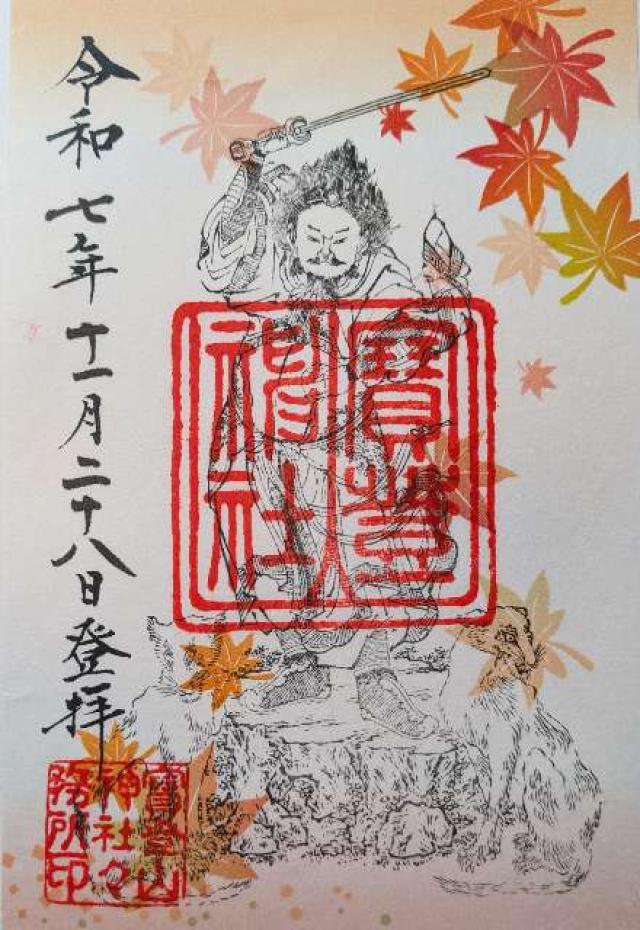 寶登
神社
令和七年十一月二十八日登拝
寶登山
神社々
務所印